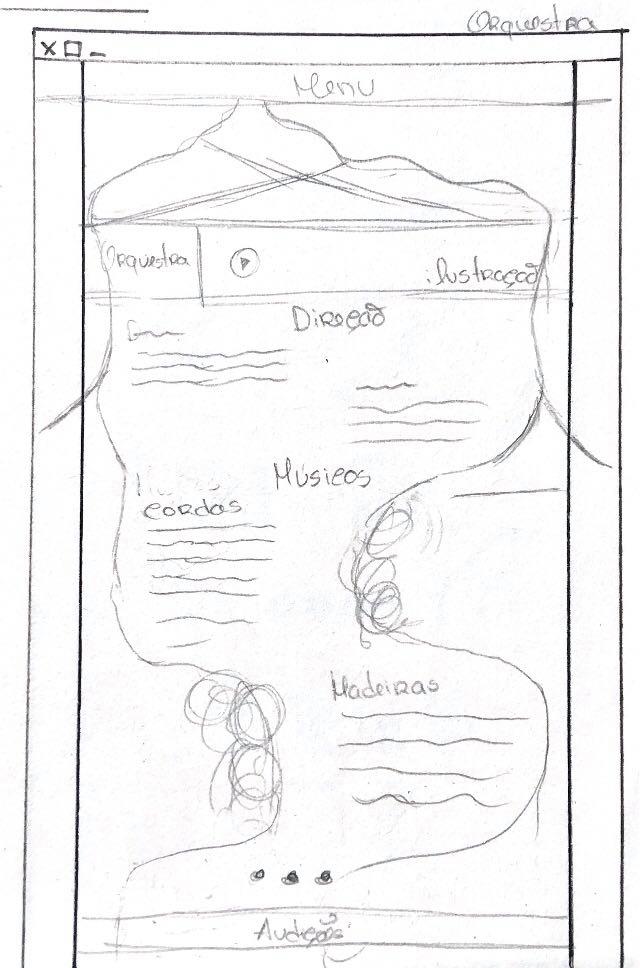 Orquestra
Menu
Orquestra
ilustração
Direção
Músicos
cordas
Madeiras
Audições